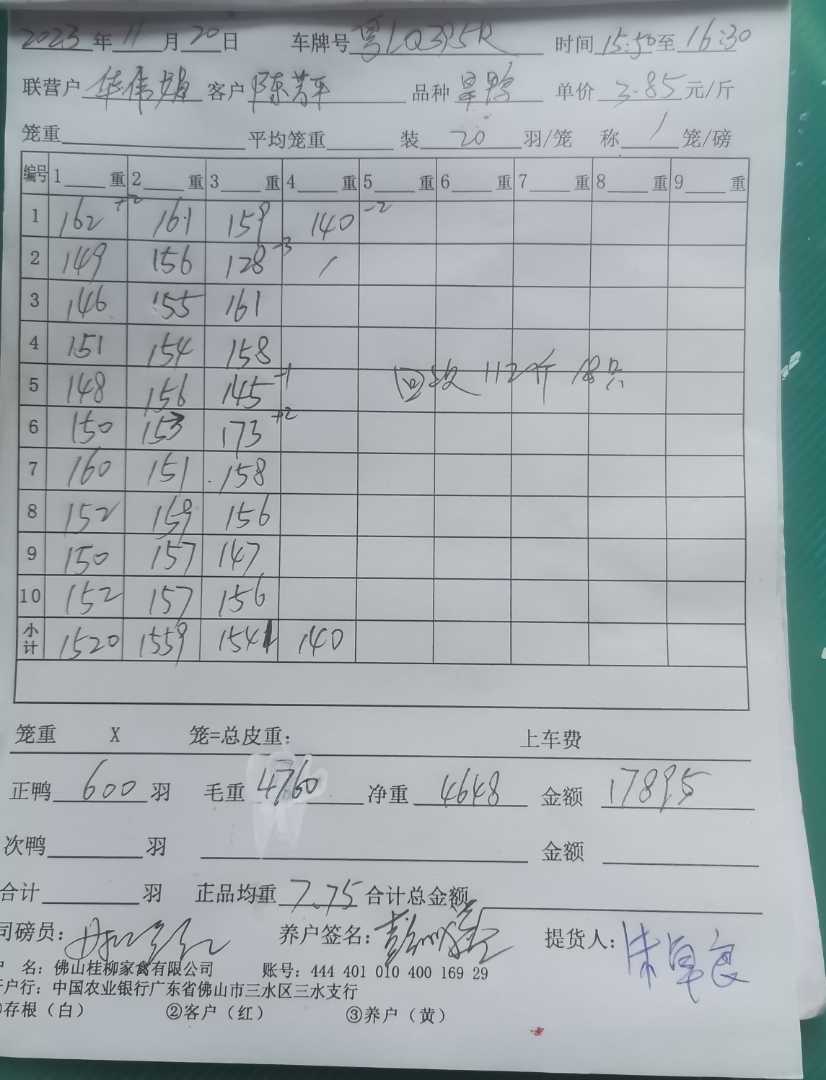 2023年11月20日 车牌号粤LQ395R 时间15:50至16:30
联营户华伟娟 客户陈芳平 品种旱鸭 单价3.85元/斤
笼重 平均笼重 装20羽/笼 称1笼/磅
编号 1 重 2 重 3 重 4 重 5 重 6 重 7 重 8 重 9 重
1 162 +2 161 159 140 -2
2 149 156 128 -3 /
3 146 155 161
4 151 154 158
5 148 156 145 -1 回收 112斤
6 150 153 173 +2
7 160 151 158
8 152 159 156
9 150 157 147
10 152 157 156
小计 1520 1559 1541 140
笼重 X 笼=总皮重: 上车费
正鸭600羽 毛重4760 净重4648 金额17895
次鸭 羽 金额
合计 羽 正品均重7.75 合计总金额
司磅员: 养户签名: 提货人:
户 名: 佛山桂柳家禽有限公司 账号: 444 401 010 400 169 29
户行: 中国农业银行广东省佛山市三水区三水支行
①存根(白) ②客户(红) ③养户(黄)